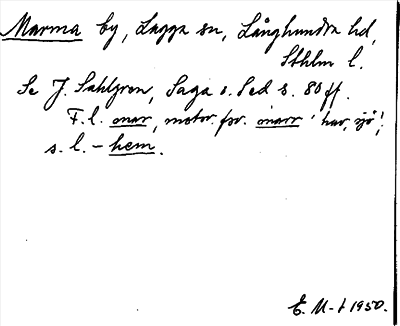 Marma by, Lagga sn, Långhundra hd,
Sthlm l.
Se J. Sahlgren, Saga o. Sed s. 80 ff.
F. l. mar, motsv. fsv. marr 'hav, sjö';
s. l. - hem.
E. M-t 1950.